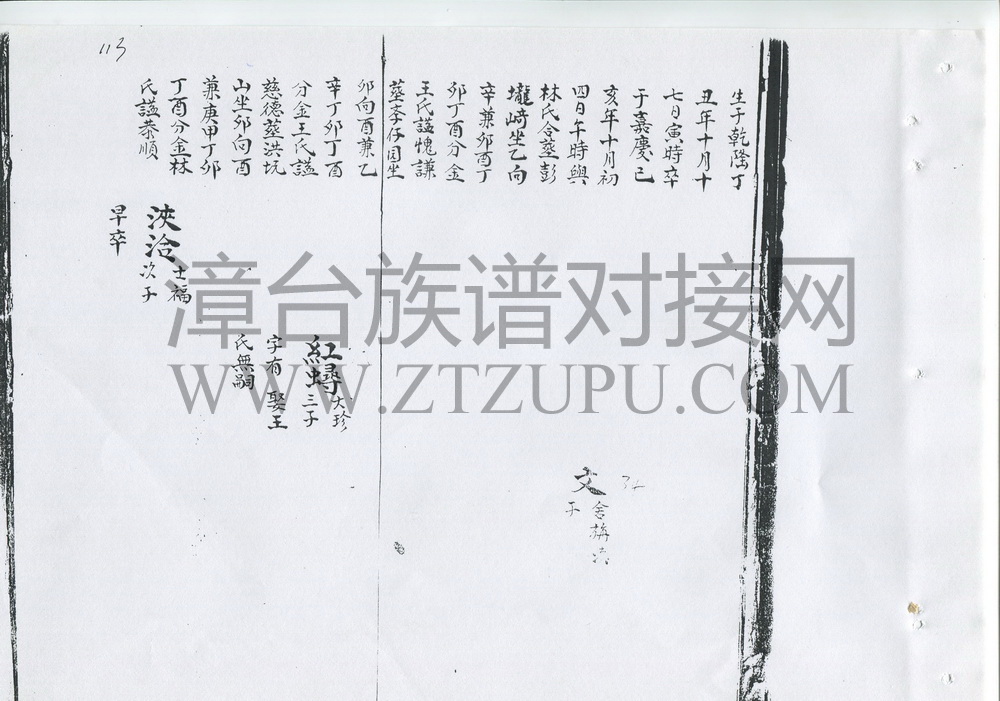 113
生于乾隆丁
丑年十月十
七日寅時卒
于嘉慶已
亥年十月初
四日午時與
林氏合塟彭
壠崎坐乙向
辛兼卯酉丁
卯丁酉分金
王氏謚愧謙
塟李仔园坐
卯向酉兼乙
辛丁卯丁酉
分金王氏謚
慈德塟洪坑
山坐卯向酉
兼庚甲丁卯
丁酉分金林
氏謚恭順
浹洽士福
次子
早卒
紅蟳大珍
三子
字有 娶王
氏無嗣
文
舍稱次
子
漳台族谱对接网
WWW.ZTZUPU.COM